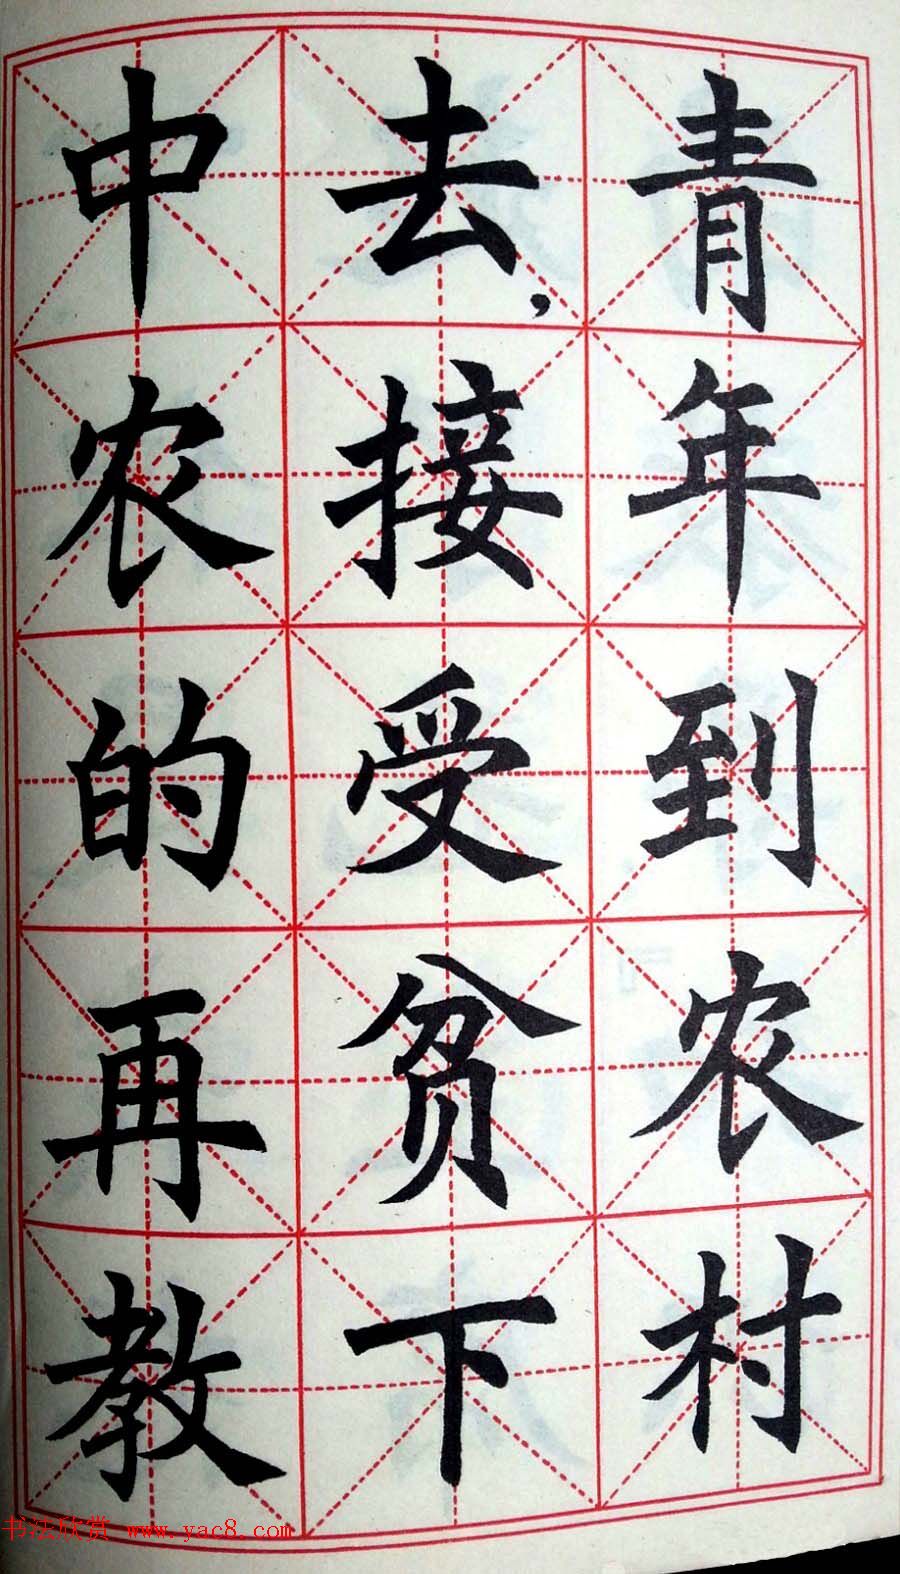 青年到农村
去，接受贫下
中农的再教
书法欣赏 www.yac8.com